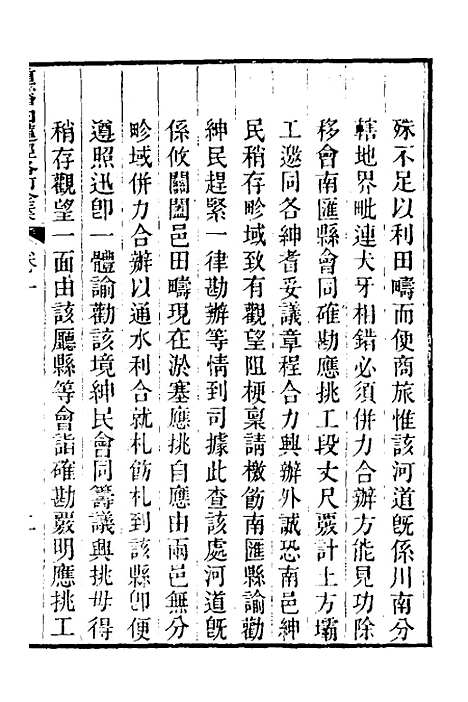 殊不足以利田疇而便商旅惟該河道既係川南分
轄地界毗連犬牙相錯必須併力合辦方能見功除
移會南匯縣會同確勘應挑工段丈尺覈計土方壩
工邀同各紳耆妥議章程合力興辦外誠恐南邑紳
民稍存畛域致有觀望阻梗稟請檄飭南匯縣諭勸
紳民趕緊一律勘辦等情到司據此查該處河道既
係攸關闔邑田疇現在淤塞應挑自應由兩邑無分
畛域併力合辦以通水利合就札飭札到該縣卽便
遵照迅卽一體諭勸該境紳民會同籌議興挑毋得
稍存觀望一面由該廳縣等會詣確勘覈明應挑工